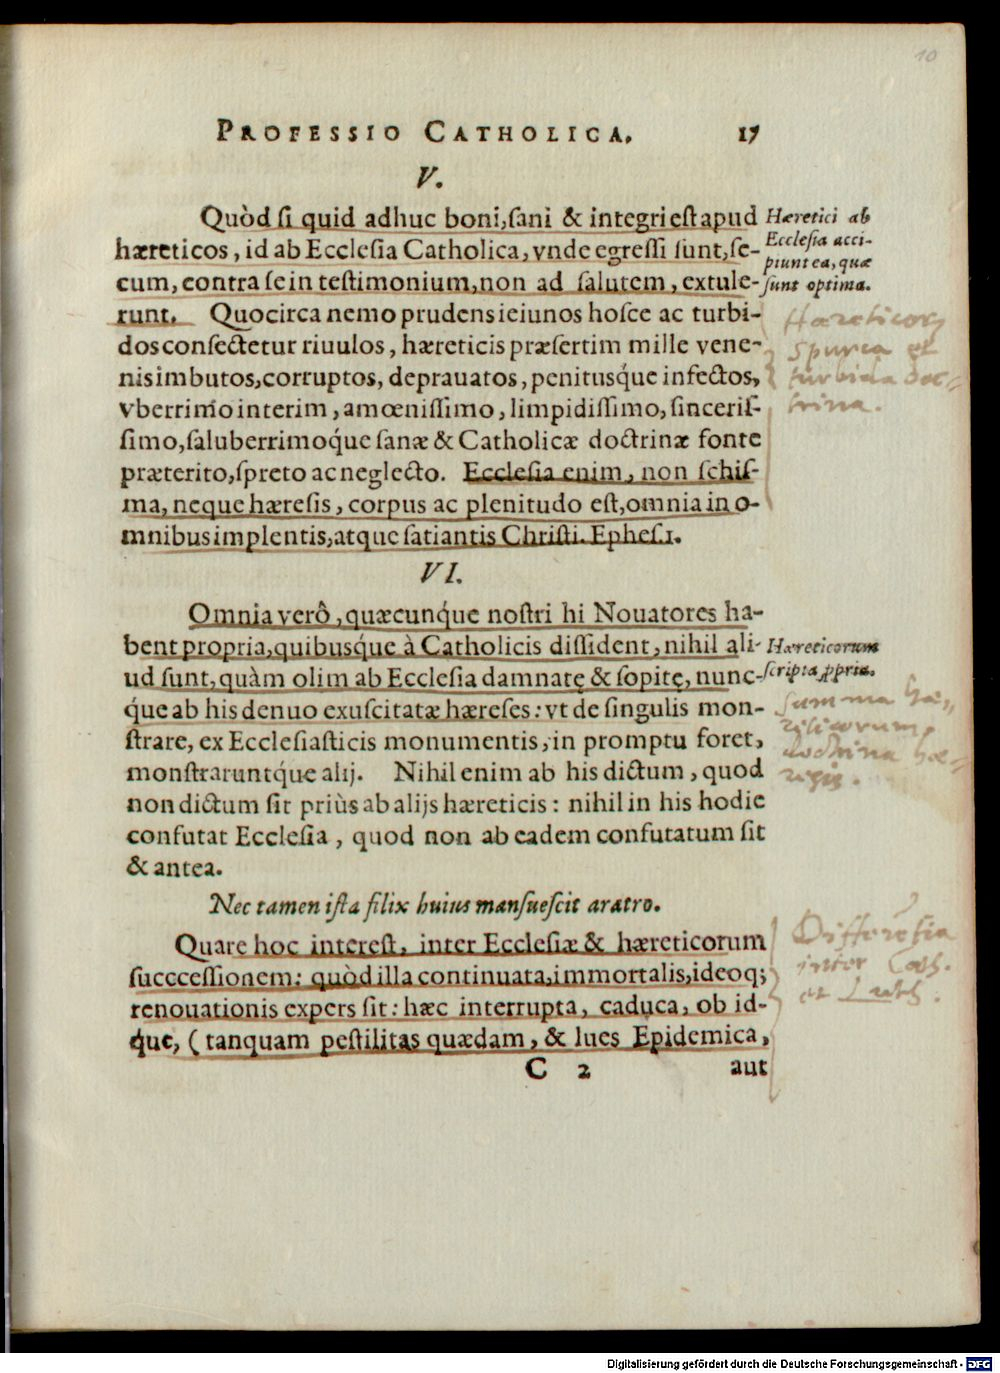 10
PROFESSIO CATHOLICA. 17
V.
Quòd ſi quid adhuc boni, ſani & integri eſt apud
hæreticos, id ab Eccleſia Catholica, vnde egreſſi ſunt, ſe-
cum, contra ſe in teſtimonium, non ad ſalutem, extule-
runt. Quocirca nemo prudens ieiunos hoſce ac turbi-
dos conſectetur riuulos, hæreticis præſertim mille vene-
nis imbutos, corruptos, deprauatos, penitusq́ue infectos,
vberrimo interim, amœniſſimo, limpidiſſimo, ſinceriſ-
ſimo, ſaluberrimoq́ue ſanæ & Catholicæ doctrinæ fonte
præterito, ſpreto ac neglecto. Eccleſia enim, non ſchiſ-
ma, neque hæreſis, corpus ac plenitudo eſt, omnia in o-
mnibus implentis, atque ſatiantis Chriſti. Epheſ. 1.
Hæretici ab
Eccleſia acci-
piunt ea, quæ
ſunt optima.
Hæreticorum
spurca et
turbida doc-
trina.
VI.
Omnia verò, quæcunq́ue noſtri hi Nouatores ha-
bent propria, quibusq́ue à Catholicis diſſident, nihil ali-
ud ſunt, quàm olim ab Eccleſia damnatę & ſopitę, nunc-
q́ue ab his denuo exuſcitatæ hæreſes: vt de ſingulis mon-
ſtrare, ex Eccleſiaſticis monumentis, in promptu foret,
monſtraruntq́ue alij. Nihil enim ab his dictum, quod
non dictum ſit priùs ab alijs hæreticis: nihil in his hodie
confutat Eccleſia, quod non ab eadem confutatum ſit
& antea.
Hæreticorum
ſcripta ꝓpria.
Summa hæ-
reticorum
doctrina hæ-
Nec tamen iſta filix huius manſueſcit aratro.
Quare hoc intereſt, inter Eccleſiæ & hæreticorum
ſucceſſionem: quòd illa continuata, immortalis, ideoq;
renouationis expers ſit: hæc interrupta, caduca, ob id-
q́ue, (tanquam peſtilitas quædam, & lues Epidemica,
Differētia
inter Cath.
et Luth.
C 2 aut
Digitalisierung gefördert durch die Deutsche Forschungsgemeinschaft - DFG